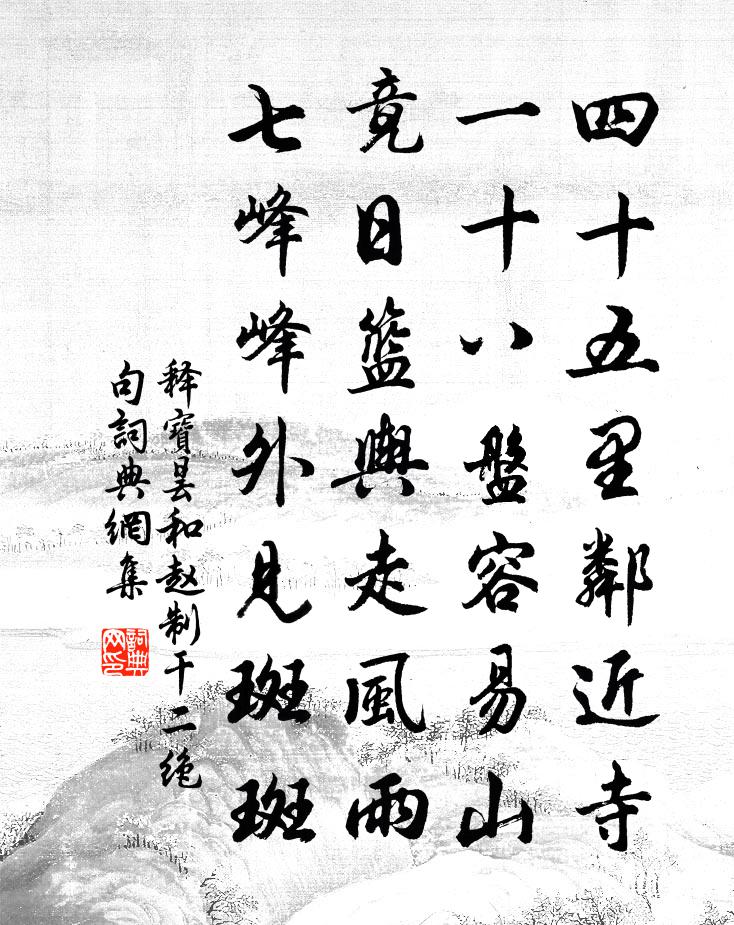 四十五里鄰近寺
一十八盤容易山
竟日籃輿走風雨
七峰峰外見斑斑
释寶曇和赵制干二绝
句詞典網集
詞典网印